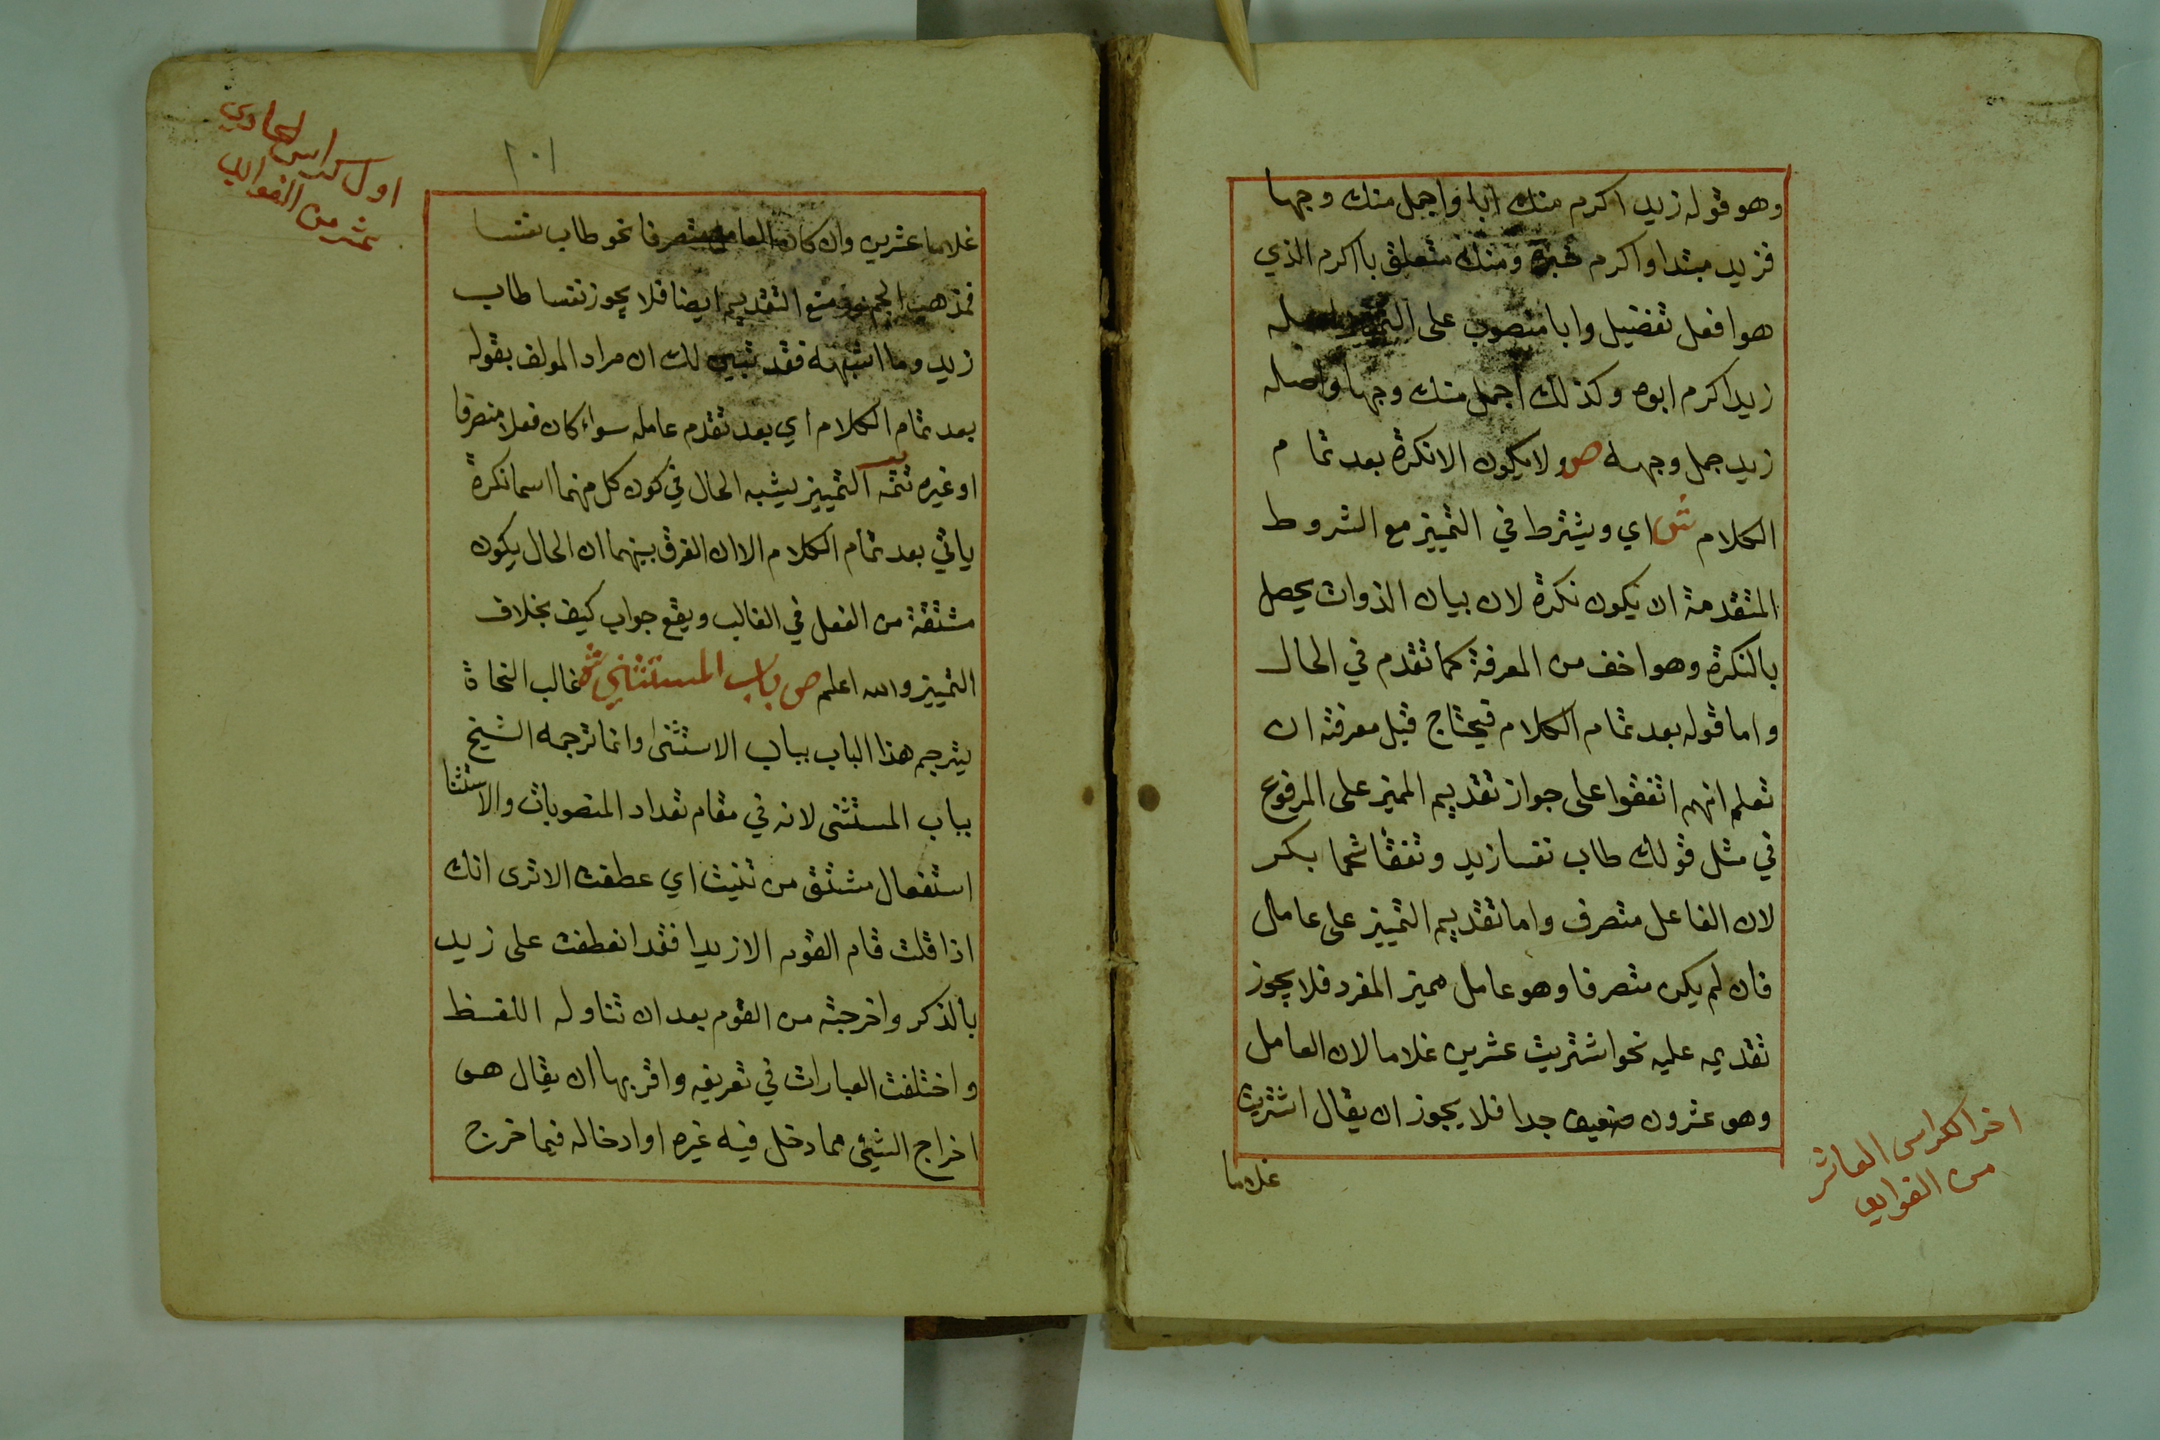 وهو قوله زيد اكرم منك ابا واجمل منك وجها
فزيد مبتدا واكرم خبره ومنك متعلق باكرم الذي
هو افعل تفضيل وابا منصوب على التمييز اصله
زيد اكرم ابوه وكذلك اجمل منك وجها واصله
زيد جمل وجهه ص ولا يكون الا نكرة بعد تمام
الكلام ش اي ويشترط في التمييز مع الشروط
المتقدمة ان يكون نكرة لان بيان الذوات يحصل
بالنكرة وهو اخف من المعرفة كما تقدم في الحال
واما قوله بعد تمام الكلام فيحتاج قبل معرفته ان
تعلم انهم اتفقوا على جواز تقديم المميز على المرفوع
في مثل قولك طاب نفسا زيد وتفقا شحما بكر
لان الفاعل متصرف واما تقديم التمييز على عامل
فان لم يكن متصرفا وهو عامل مميز المفرد فلا يجوز
تقديمه عليه نحو اشتريت عشرين غلاما لان العامل
وهو عشرون ضعيف جدا فلا يجوز ان يقال اشتريت
غلاما
اخر الكراس العاشر
من الفوايد
اول كراس الحادي
عشر من الفوايد
١٠١
غلاما عشرين وان كان العامل متصرفا نحو طاب نفسا
فمذهب الجمهور منع التقديم ايضا فلا يجوز نفسا طاب
زيد وما اشبهه فقد تبين لك ان مراد المولف بقوله
بعد تمام الكلام اي بعد تقدم عامله سواء كان فعلا متصرفا
او غيره تتمه التمييز يشبه الحال في كون كل منهما اسما نكرة
ياتي بعد تمام الكلام الا ان الفرق بينهما ان الحال يكون
مشتقة من الفعل في الغالب ويقع جواب كيف بخلاف
التمييز والله اعلم ص باب المستثني ش غالب النحاة
يترجم هذا الباب بباب الاستثنا وانما ترجمه الشيخ
بباب المستثنى لانه في مقام تعداد المنصوبات والاستثنا
استفعال مشتق من ثنيت اي عطفت الا ترى انك
اذا قلت قام القوم الا زيدا فقد انعطفت على زيد
بالذكر واخرجته من القوم بعد ان تناوله اللفظ
واختلفت العبارات في تعريفه واقربها ان يقال هو
اخراج الشيئ مما دخل فيه غيره او ادخاله فيما خرج